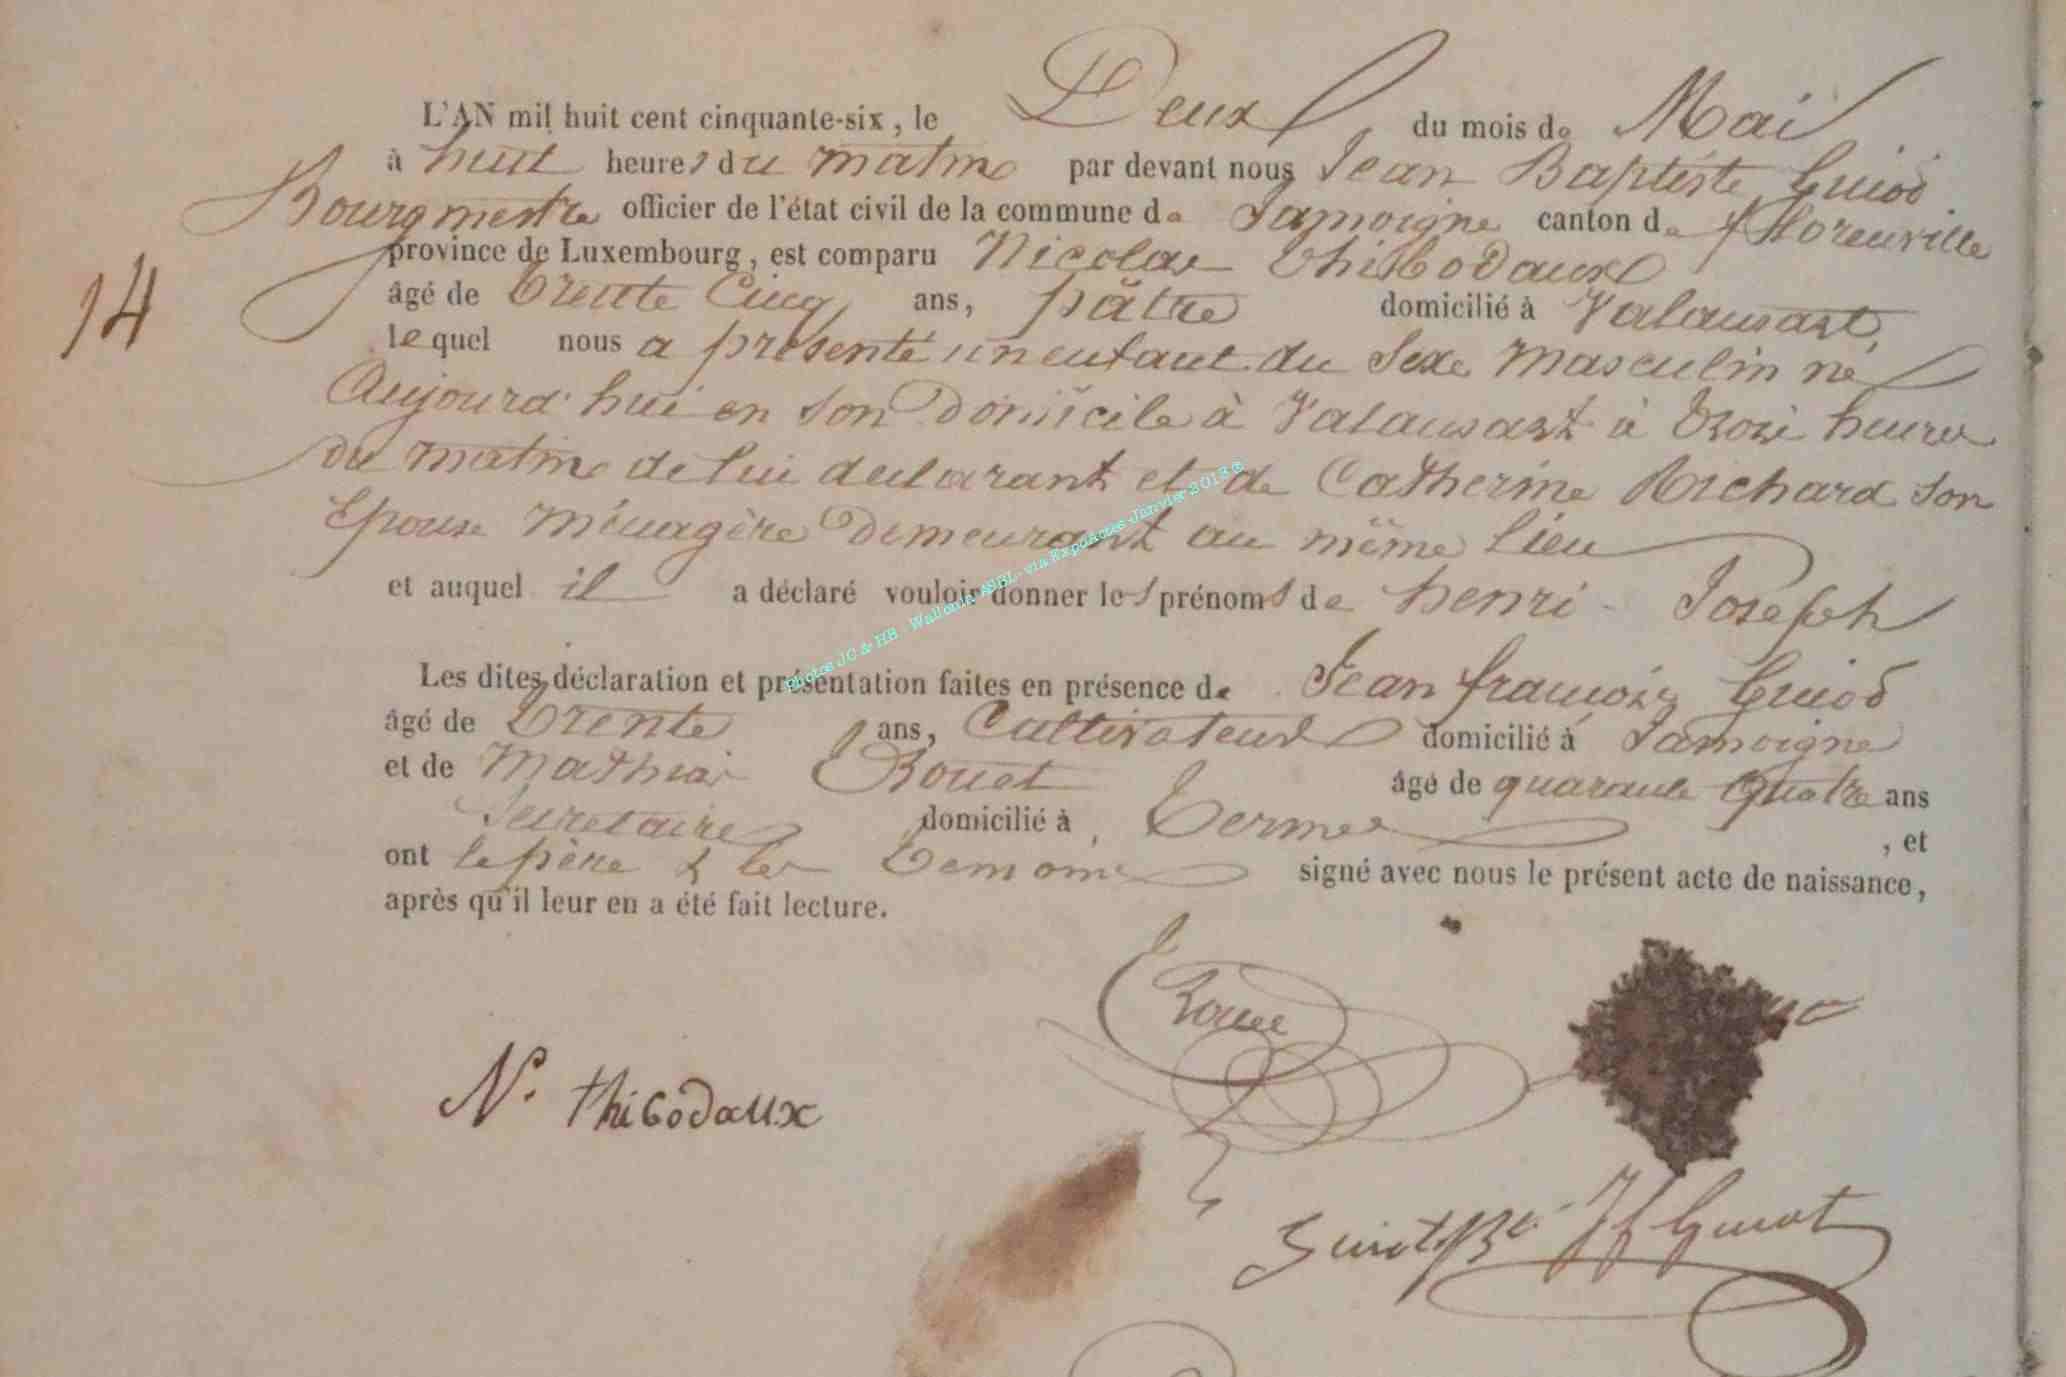 L'AN mil huit cent cinquante-six, le Deux du mois de Mai
à huit heures du matin par devant nous Jean Baptiste Guiot
Bourgmestre officier de l'état civil de la commune de Jamoigne canton de florenville
province de Luxembourg, est comparu Nicolas thibodaux
14
âgé de trente Cinq ans, pâtre domicilié à Valansart,
lequel nous a présenté un enfant du Sexe masculin né
Aujourd'hui en son Domicile à Valansart à trois heures
du matin de lui declarant et de Catherine Richard son
Epouse ménagère Demeurant au même lieu
et auquel il a déclaré vouloir donner les prénoms de henri Joseph
Photos JC & HB - Wallonia ASBL - via ExpoActes Janvier 2013 ©
Les dites déclaration et présentation faites en présence de Jean françois Guiot
âgé de trente ans, Cultivateur domicilié à Jamoigne
et de Mathias Rouet âgé de quarante quatre ans
Secretaire domicilié à termes, et
ont le père & les temoins signé avec nous le présent acte de naissance,
après qu'il leur en a été fait lecture.
Rouet
N. thibodaux
Guiot JBte Jf Guiot